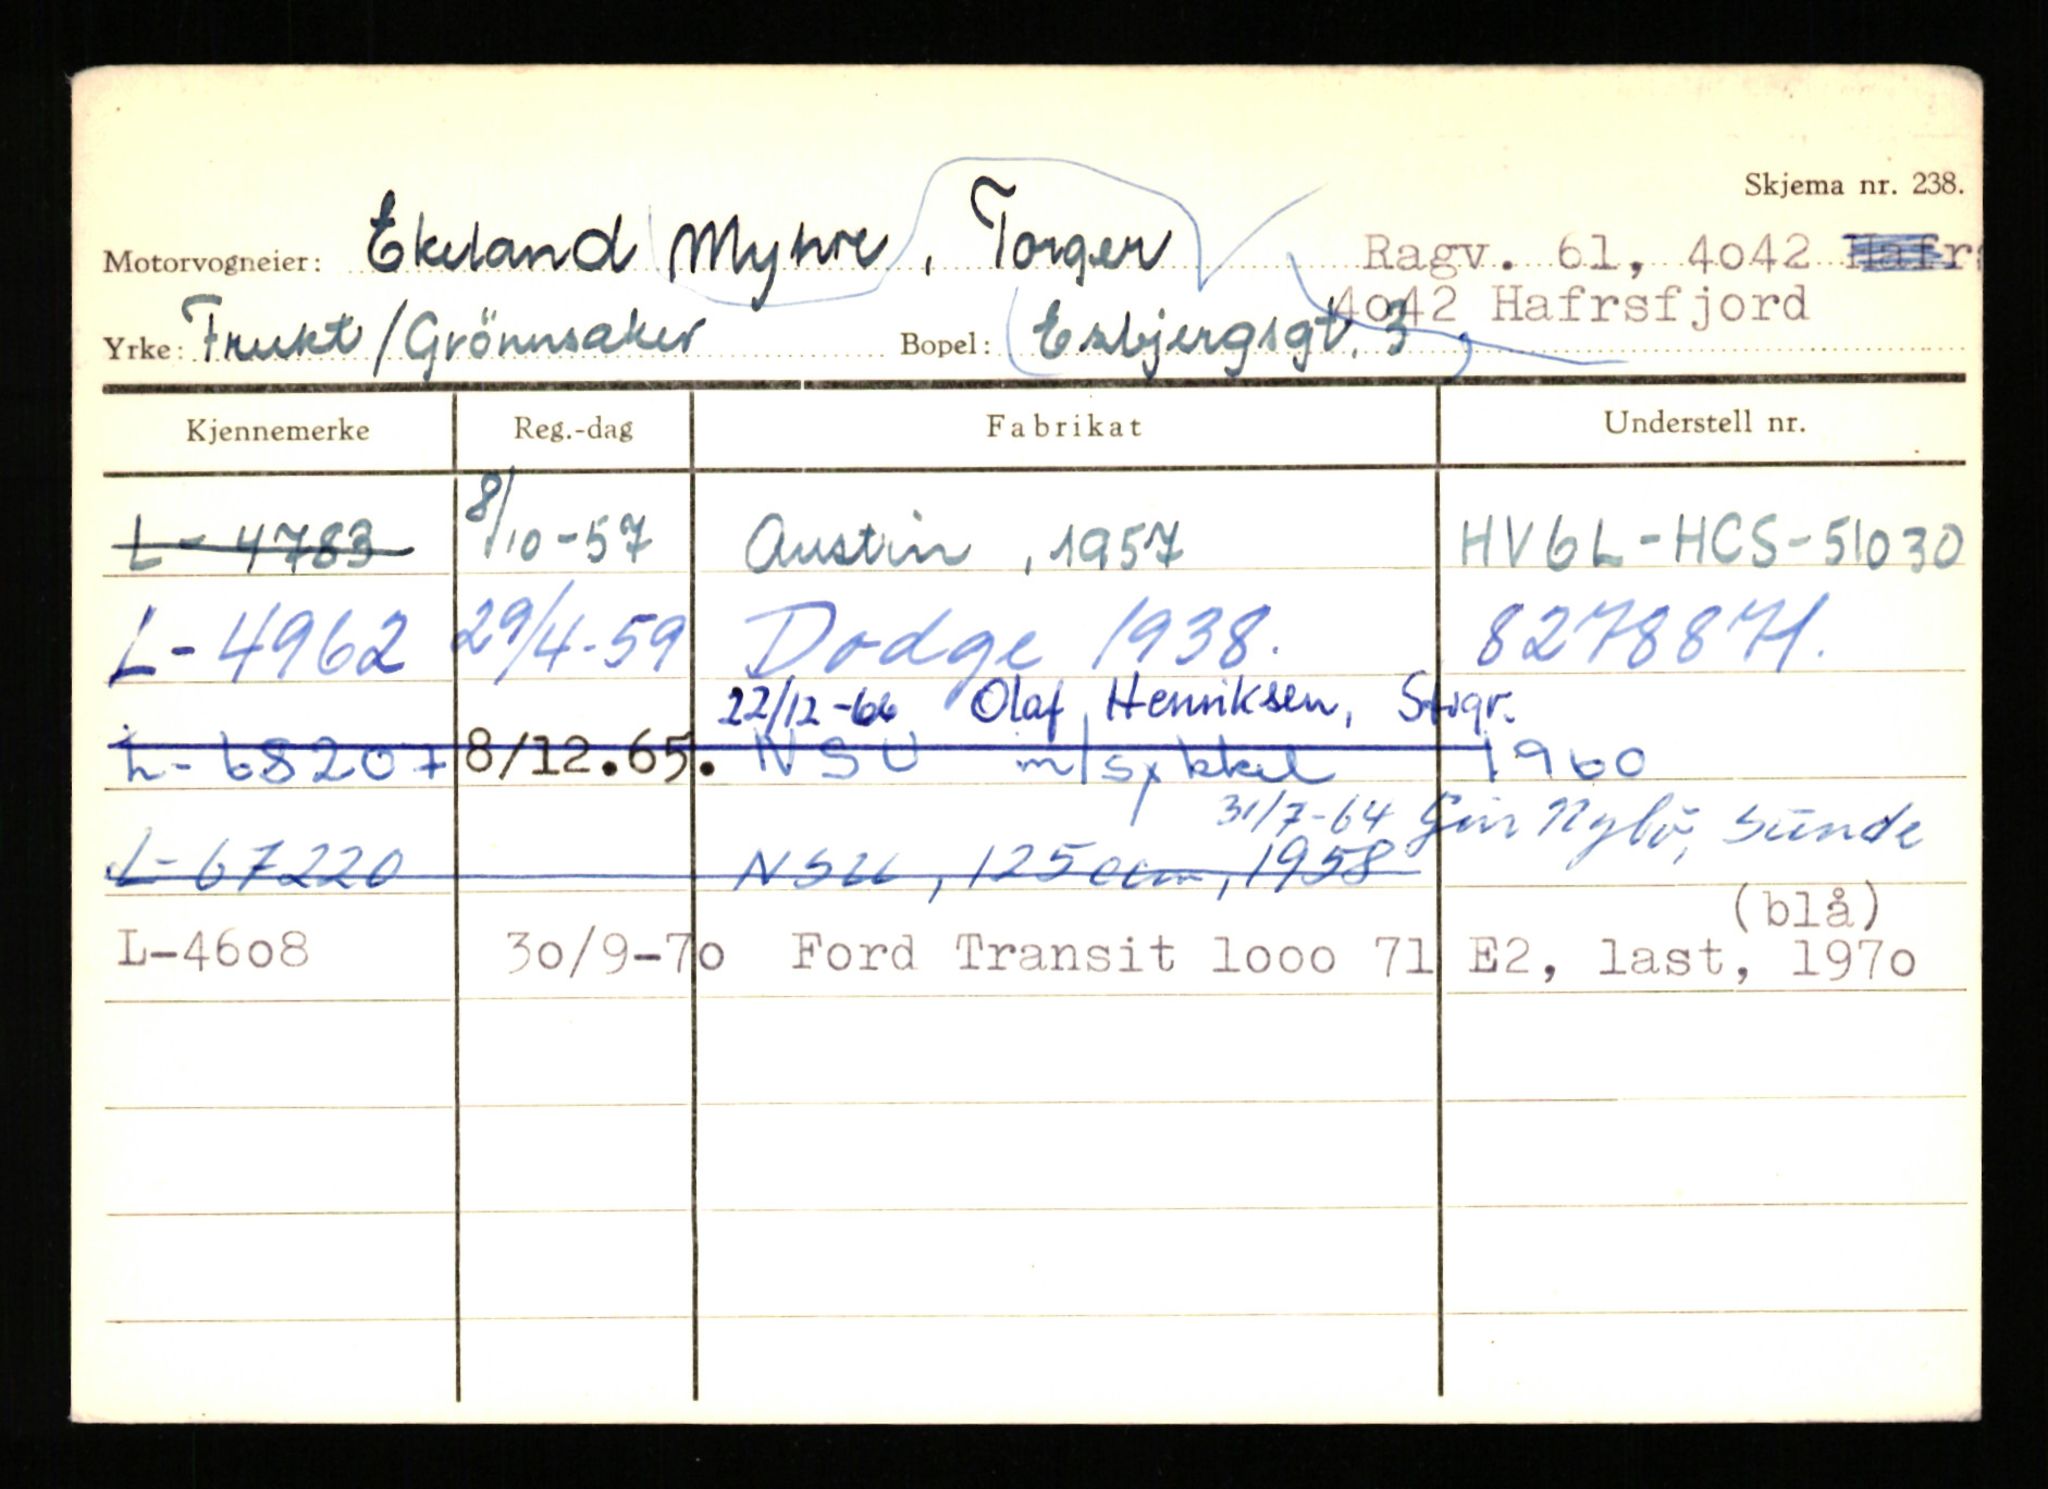 Skjema nr. 238.
Motorvogneier: Ekeland Myhre, Torger Ragv. 61, 4o42
4o42 Hafrsfjord
Yrke: Frukt/Grönnsaker Bopel: Esbjergsgt. 3
Kjennemerke Reg.-dag Fabrikat Understell nr.
L-4783 8/10-57 Austin, 1957 HV6L-HCS-51030
L-4962 29/4-59 Dodge 1938. 8278871.
22/12-66 Olaf Henriksen, Stvgr.
L-68207 8/12.65. NSU m/sykkel 1960
31/7-64 Geir Nylö, Sunde
L-67220 NSU, 125 ccm, 1958
(blå)
L-46o8 3o/9-7o Ford Transit 1ooo 71 E2, last, 197o